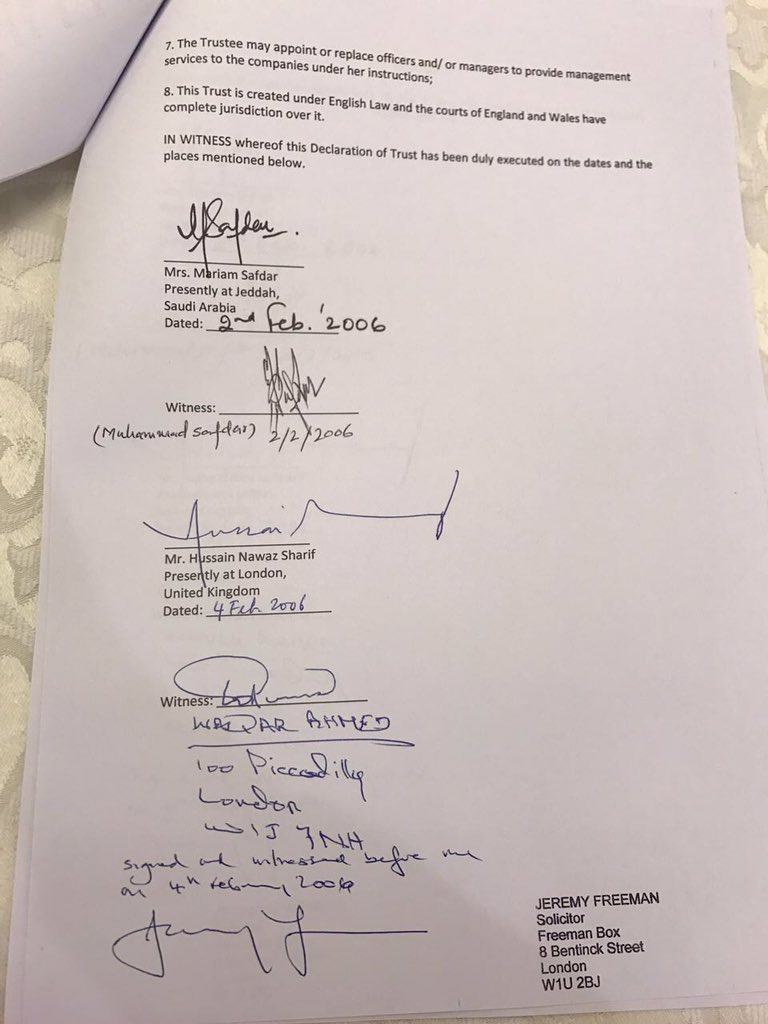 7. The Trustee may appoint or replace officers and/ or managers to provide management
services to the companies under her instructions;
8. This Trust is created under English Law and the courts of England and Wales have
complete jurisdiction over it.
IN WITNESS whereof this Declaration of Trust has been duly executed on the dates and the
places mentioned below.
MSafdar.
Mrs. Mariam Safdar
Presently at Jeddah,
Saudi Arabia
Dated: 2nd Feb. '2006
Witness:
(Muhammad Safdar) 2/2/2006
Hussain
Mr. Hussain Nawaz Sharif
Presently at London,
United Kingdom
Dated: 4 Feb 2006
Witness:
WAQAR AHMED
100 Piccadilly
London
W1J 7NH
signed and witnessed before me
on 4th February 2006
JEREMY FREEMAN
Solicitor
Freeman Box
8 Bentinck Street
London
W1U 2BJ